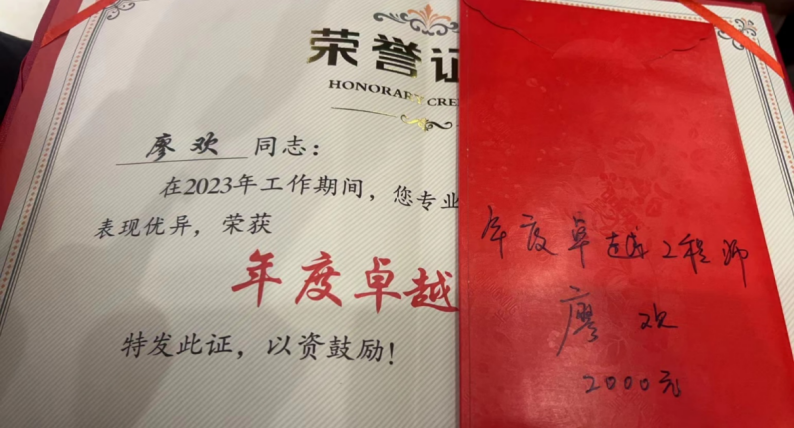 荣誉证
HONORARY CRE
廖欢 同志：
在2023年工作期间，您专业
表现优异，荣获
年度卓越
特发此证，以资鼓励！
年度卓越工程师
廖欢
2000元